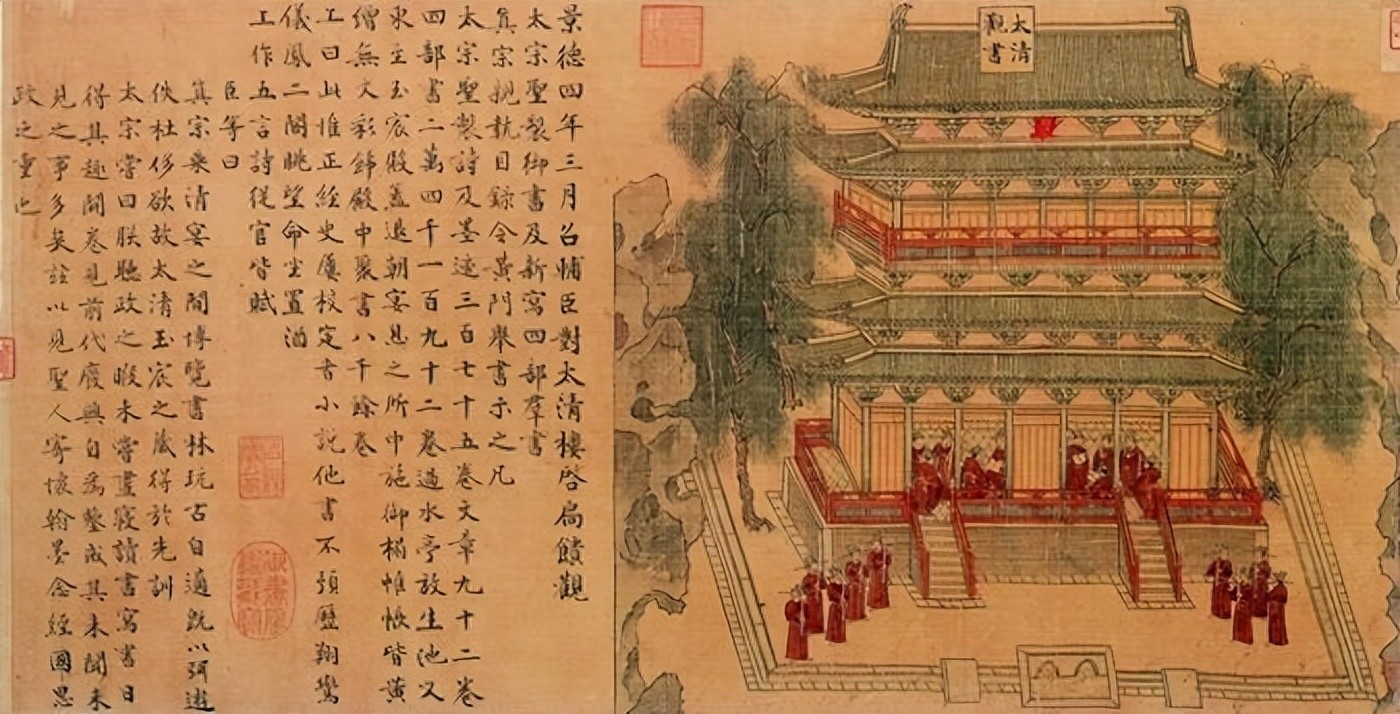 太清
觀書
景德四年三月召輔臣對太清樓啓扃饋觀
太宗聖製御書及新寫四部羣書
真宗親執目錄令黃門舉書示之凡
太宗聖製詩及墨迹三百七十五卷文章九十二卷
四部書二萬四千一百九十二卷過水亭放生池又
東至玉宸殿蓋退朝宴息之所中施御榻惟帳皆黃
繒無文彩飾殿中聚書八千餘卷
上曰此惟正經史屢校定書小說他書不預歷翔鸞
儀鳳二閣眺望命坐置酒
上作五言詩從官皆賦
臣等曰
真宗乘清宴之間博覽書林玩古自適既以弭遊
佚杜侈欲故太清玉宸之藏得於先訓
太宗嘗曰朕聽政之暇未嘗晝寢讀書寫書日
得其趣閱卷見前代廢興自為鑒戒其未聞未
見之事多矣茲以見聖人寄懷翰墨念經國思
政之重也